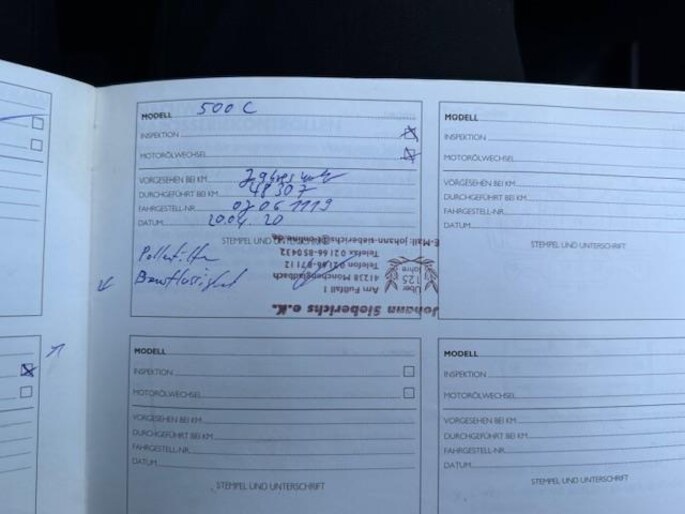 MODELL 500 C
INSPEKTION
MOTORÖLWECHSEL
VORGESEHEN BEI KM
DURCHGEFÜHRT BEI KM 48307
FAHRGESTELL-NR. 07061119
DATUM 20.04.20
STEMPEL UND
Pollenfilter
Bremsflüssigkeit
E-Mail: johann-sieberichs@t-online.de
Telefax 02166-850432
Telefon 02166-87112
41238 Mönchengladbach
Am Fußfall 1
Johann Sieberichs e.K.
Über
125
Jahre
MODELL
INSPEKTION
MOTORÖLWECHSEL
VORGESEHEN BEI KM
DURCHGEFÜHRT BEI KM
FAHRGESTELL-NR.
DATUM
STEMPEL UND UNTERSCHRIFT
MODELL
INSPEKTION
MOTORÖLWECHSEL
VORGESEHEN BEI KM
DURCHGEFÜHRT BEI KM
FAHRGESTELL-NR.
DATUM
STEMPEL UND UNTERSCHRIFT
MODELL
INSPEKTION
MOTORÖLWECHSEL
VORGESEHEN BEI KM
DURCHGEFÜHRT BEI KM
FAHRGESTELL-NR.
DATUM
STEMPEL UND UNTERSCHRIFT